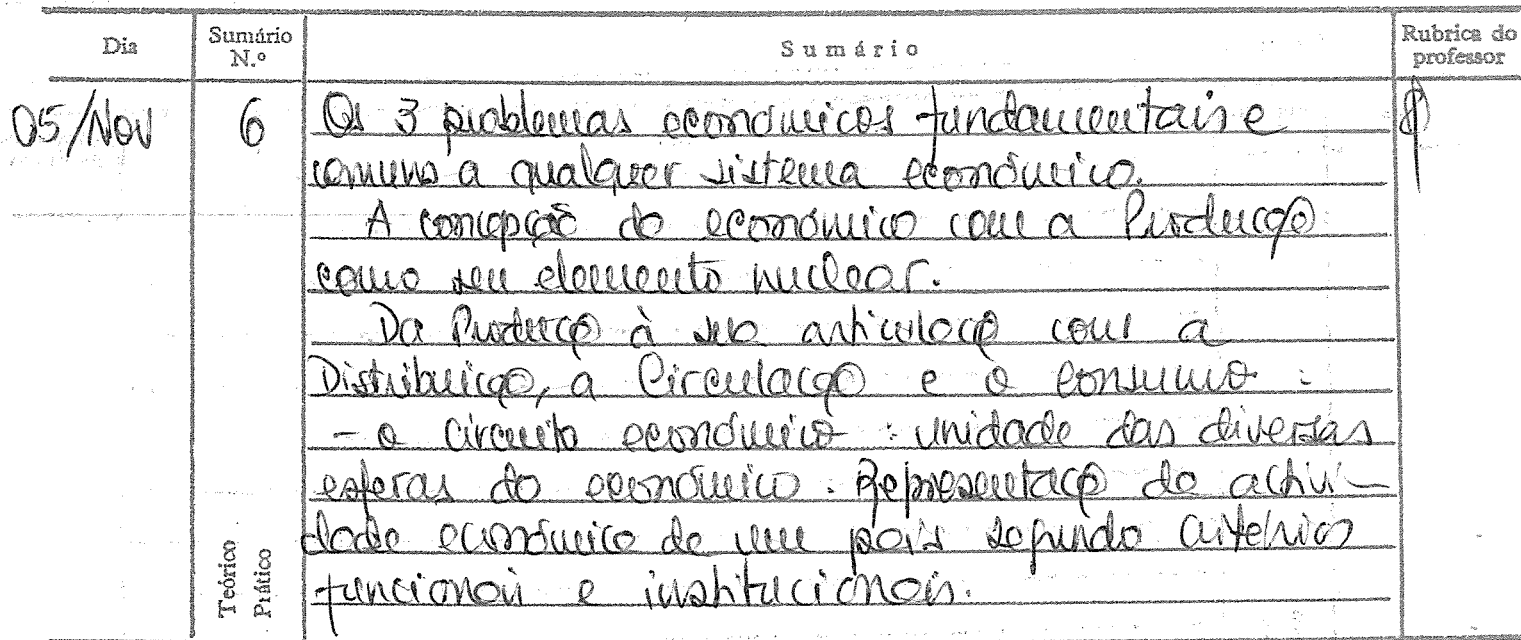 Dia Sumário N.º Sumário Rubrica do professor
05/Nov 6 Os 3 problemas económicos fundamentais e
comuns a qualquer sistema económico.
A concepção do económico com a Produção
como seu elemento nuclear.
Da Produção à sua articulação com a
Distribuição, a Circulação e o Consumo :
- o circuito económico : unidade das diversas
esferas do económico. Representação da activi-
dade económica de um país segundo critérios
funcionais e institucionais.
Teórico
Prático